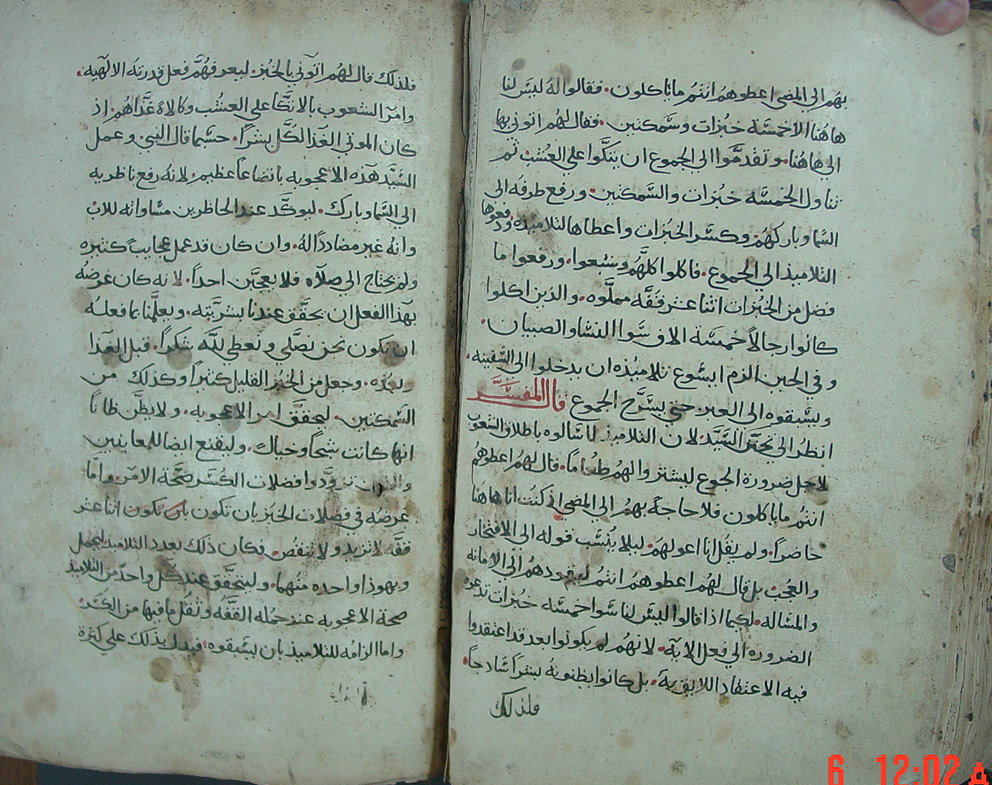 بهم الى المضي اعطوهم انتم ما ياكلون. فقالوا له ليس لنا
هاهنا الا خمسة خبزات وسمكتين. فقال لهم اتوني بها
الى هاهنا. وتقدموا الى الجموع ان يتكوا على العشب ثم
تناول الخمسه خبزات والسمكتين. ورفع طرفه الى
السما وباركهم. وكسر الخبزات واعطاها لتلاميذه ودفعوها
التلاميذ الى الجموع. فاكلوا كلهم وشبعوا. ورفعوا ما
فضل من الخبزات اثنا عشر قفه مملوه. والذين اكلوا
كانوا رجالاً خمسة الاف سوا النسا والصبيان.
وفي الحين الزم ايسوع تلاميذه ان يدخلوا الى السفينه.
ويسبقوه الى العبر حتي يسرح الجموع قال المفسر
انظر الى تحنن السيد لان التلاميذ لما سالوه باطلاق الشعوب
لاجل ضرورة الجوع ليشتروا لهم طعاماً. قال لهم اعطوهم
انتم ما ياكلون فلا حاجة بهم الى المضي اذ كنت انا هاهنا
حاضراً. ولم يقل انا اعولهم. ليلا ينسب قوله الى الافتخار
والعجب بل قال لهم اعطوهم انتم ليقودهم الى الامانه
والمساله. لكيما اذا قالوا ليس لنا سوا خمسه خبزات تدعوه
الضروره الى فعل الايه. لانهم لم يكونوا بعد قد اعتقدوا
فيه الاعتقاد اللايق به. بل كانوا يظنونه بشراً ساذجاً.
فلذلك
فلذلك قال لهم اتوني بالخبز ليعرفهم فعل قدرته الالهيه.
وامر الشعوب بالاتكا على العشب وكالاه غذاهم. اذ
كان الموتي الغذا لكل بشراً. حسبما قال النبي. وعمل
السيد هذه الاعجوبه باتضاعاً عظيم. لانه رفع ناظريه
الى السما وبارك. ليوكد عند الحاظرين مساواته للاب
وانه غير مضاددًا له. وان كان قد عمل عجايب كتيره
ولم يحتاج الى صلاه فلا يعجبن احداً. لانه كان غرضه
بهذا الفعل ان يحقق عندنا بشريته. ويعلمنا بما فعله
ان نكون نحن نصلي ونعطي لله شكراً. قبل الغدا
وبعده. وجعل من الخبز القليل كتيراً وكذلك من
السمكتين. ليحقق امر الاعجوبه. ولا يظن ظاناً
انها كانت شبحاً وخيال. وليقنع ايضا للمعاينين
والذين تزودوا فضلات الكسر بصحة الامر. واما
غرضه في فضلات الخبز بان تكون بان تكون اثنا عشر
قفه لا تزيد ولا تنقص. فكان ذلك بعدد التلاميذ ليحمل
ويهوذا واحده منهما. وليتحقق عند كل واحد من التلاميذ
صحة الاعجوبه عند حمله القفه وثقل ما فيها من الكسر.
واما الزامه للتلاميذ بان يسبقوه. فيدل بذلك على كثرة
6 12:02 A